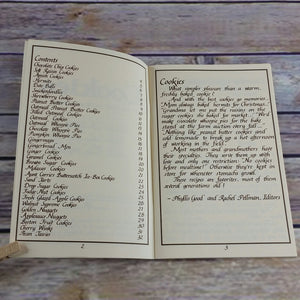 Contents
Chocolate Chip Cookies
Soft Raisin Cookies
Apple Cookies
Hermits
Date Balls
Snickerdoodles
Grandma's Cookies
Peanut Butter Cookies
Oatmeal Peanut Butter Cookies
Filled Oatmeal Cookies
Oatmeal Cookies
Oatmeal Whoopie Pies
Chocolate Whoopie Pies
Pumpkin Whoopie Pies
Gingersnaps
Gingerbread Men
Ginger Cookies
Lemon Cookies
Brown Sugar Cookies
Molasses Cookies
Aunt Elsie's Butterscotch Ice-Box Cookies
Sand Tarts
Drop Sugar Cookies
Fudge Nut Cookies
Fresh Glazed Apple Cookies
Walnut Supreme Cookies
Golden Nuggets
Applesauce Nuggets
Boston Fruit Cookies
Cherry Winks
2
Cookies
What simpler pleasure than a warm,
freshly baked cookie?
And with the best cookies go memories.
"Mom always baked hermits for Christmas."
"Grandma let me put the raisins on the
sugar cookies she baked for market." "We'd
make chocolate whoopie pies for the bake
stand at the farm auction every fall."
Nothing like peanut butter cookies and
cold lemonade to break up a hot afternoon
of working in the field.
Most mothers and grandmothers have
their specialties. They serve them up with
love and only one restriction: "No cookies
before mealtime!" Otherwise they're kept on
store for whenever stomachs growl.
These recipes are favorites, most of them
several generations old!
—Phyllis Good and Rachel Pellman, Editors
3